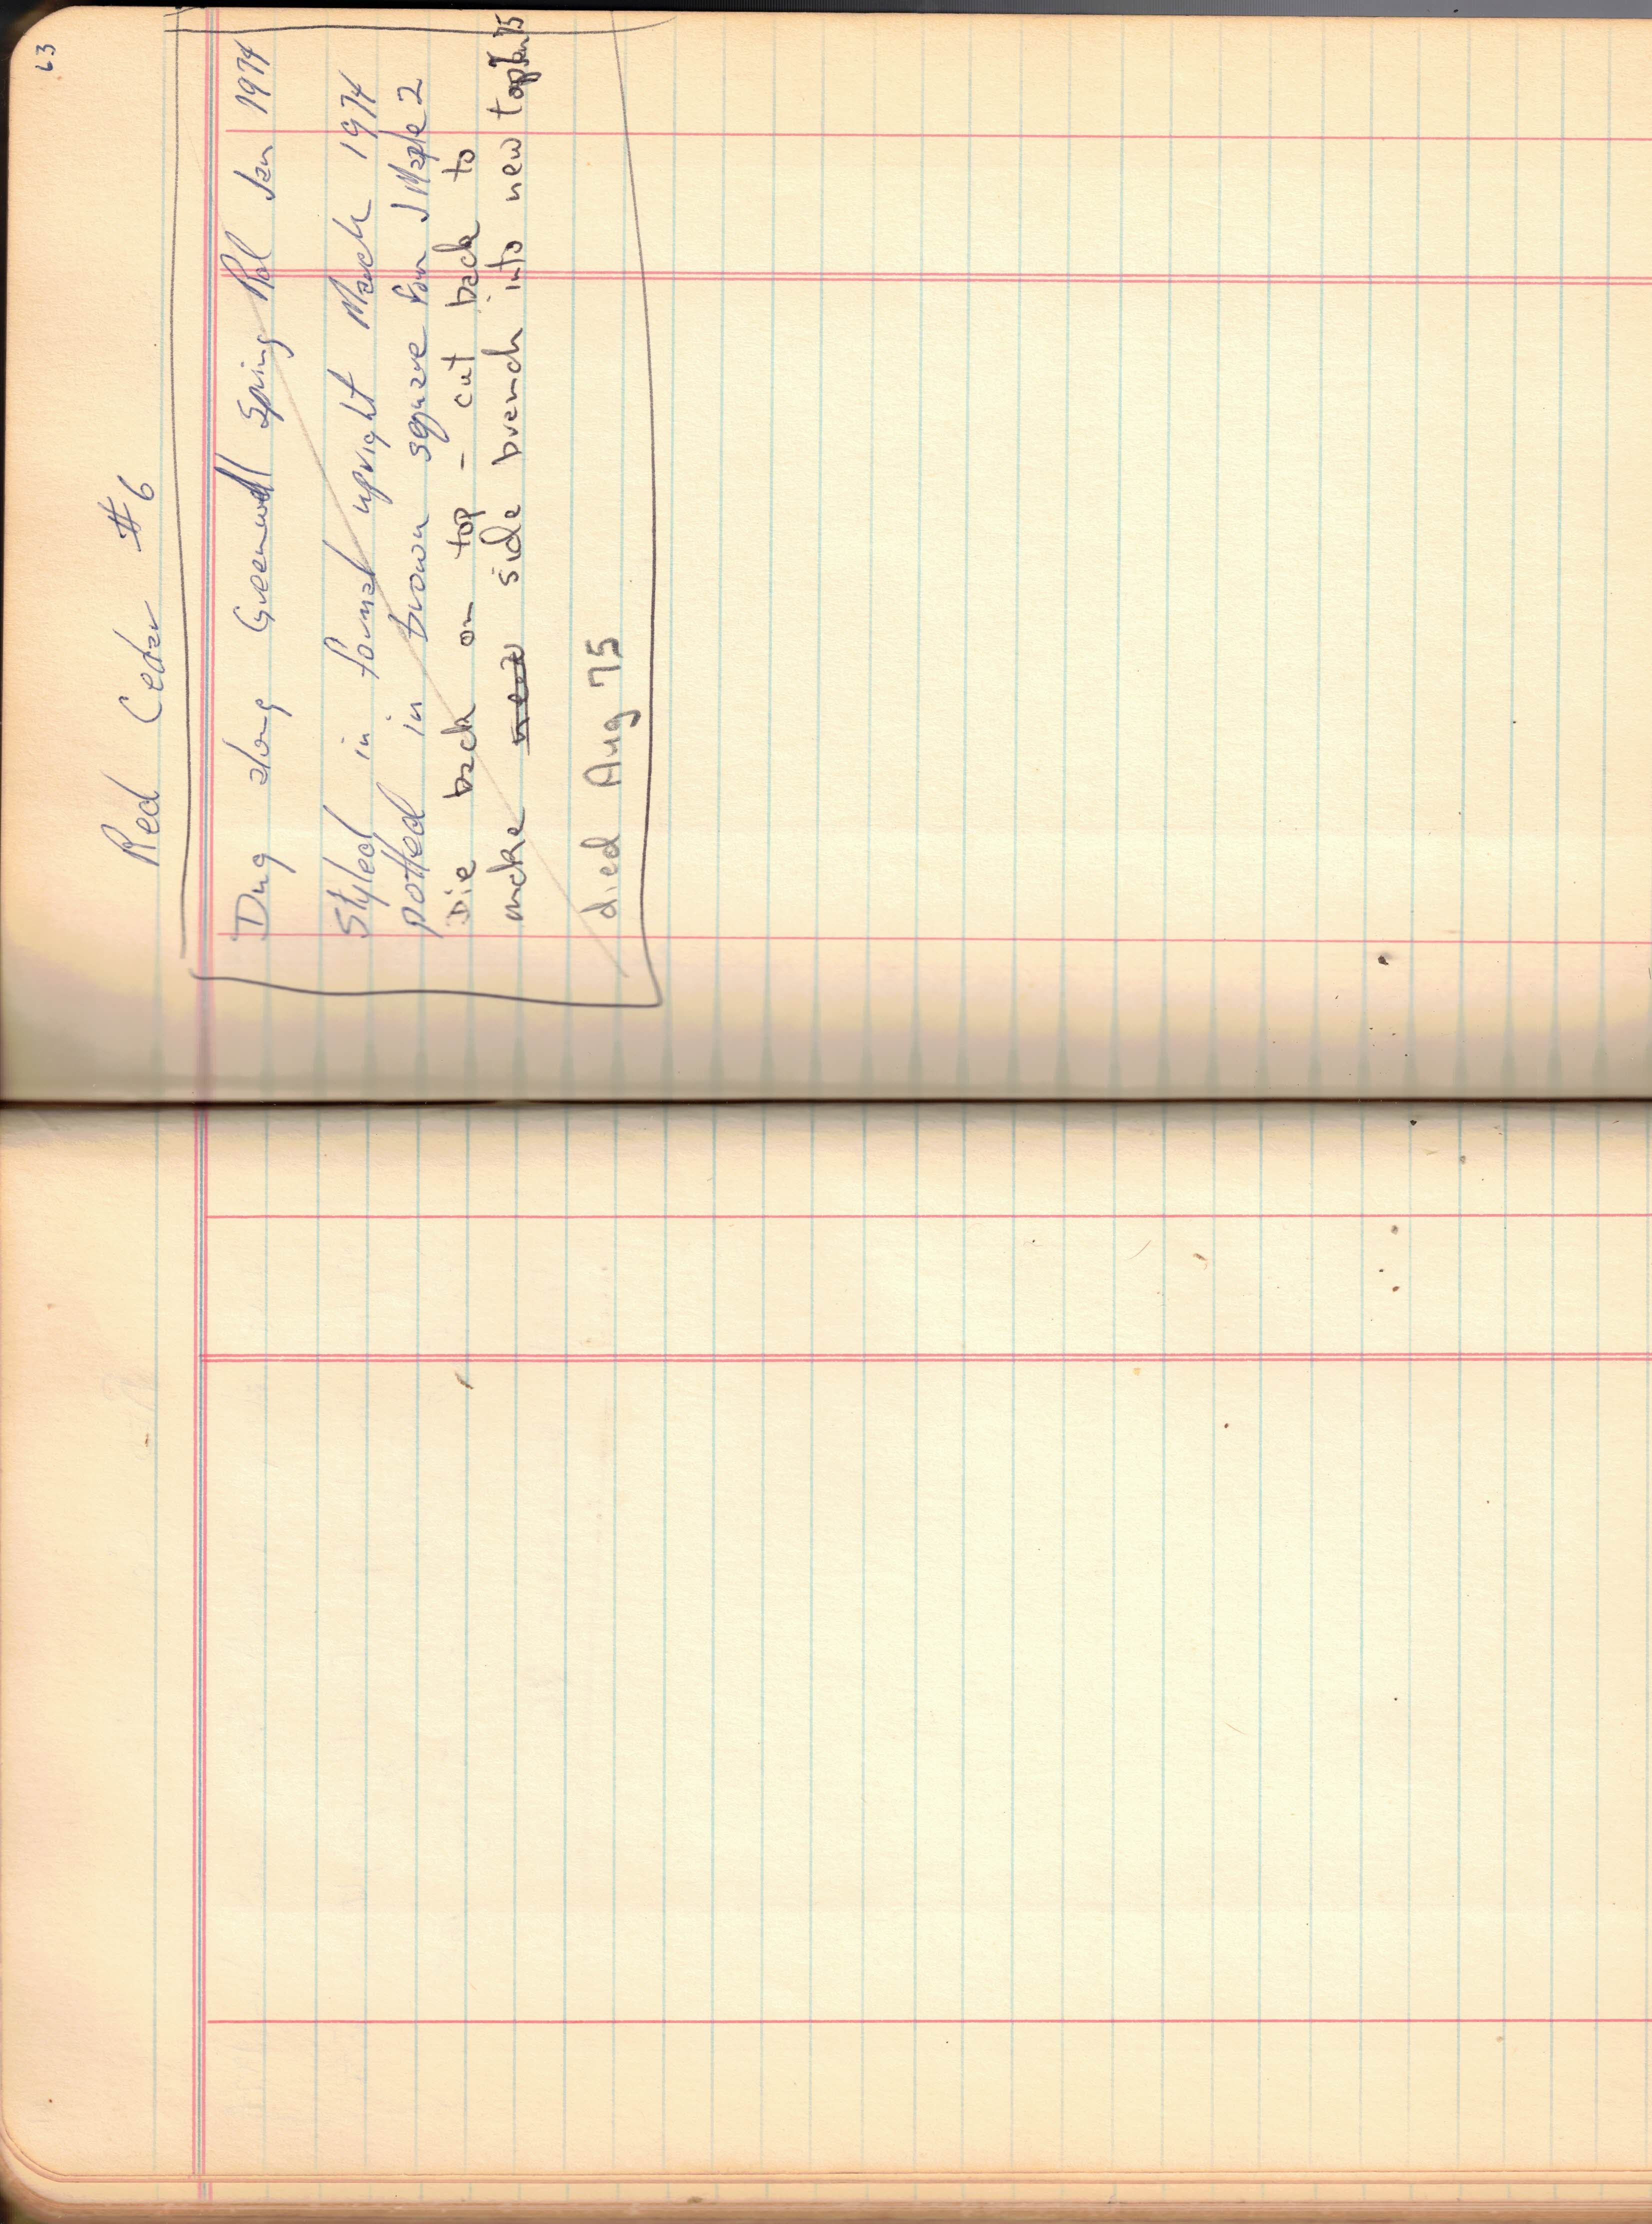 63
Red Cedar #6
Dug along Greenwell Spring Rd Jan 1974
Styled in formal upright March 1974
potted in brown square from J Maple 2
Die back on top - cut back to
make new side branch into new top Jan 75
died Aug 75